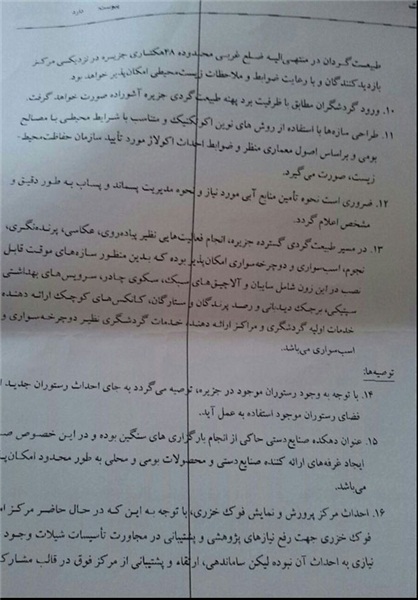 پیوست
طبیعت‌گردان در منتهی‌الیه ضلع غربی محدوده ۲۸هکتاری جزیره در نزدیکی مرکز
بازدیدکنندگان و با رعایت ضوابط و ملاحظات زیست‌محیطی امکان‌پذیر خواهد بود.
۱۰. ورود گردشگران مطابق با ظرفیت برد پهنه طبیعت‌گردی جزیره آشوراده صورت خواهد گرفت.
۱۱. طراحی سازه‌ها با استفاده از روش های نوین اکوتکنیک و متناسب با شرایط محیطی با مصالح
بومی و براساس اصول معماری منظر و ضوابط احداث اکولاژ مورد تأیید سازمان حفاظت‌محیط-
زیست، صورت می‌گیرد.
۱۲. ضروری است نحوه تأمین منابع آبی مورد نیاز و نحوه مدیریت پسماند و پساب به طور دقیق و
مشخص اعلام گردد.
۱۳. در مسیر طبیعت‌گردی گسترده جزیره، انجام فعالیت‌هایی نظیر پیاده‌روی، عکاسی، پرنده‌نگری،
نجوم، اسب‌سواری و دوچرخه‌سواری امکان‌پذیر بوده که بدین منظور سازه‌های موقت قابل
نصب در این زون شامل سایبان و آلاچیق‌های سبک، سکوی چادر، سرویس‌های بهداشتی
سپتیکی، برجک دیدبانی و رصد پرندگان و ستارگان، کانکس‌های کوچک ارائه دهنده
خدمات اولیه گردشگری و مراکز ارائه دهنده خدمات گردشگری نظیر دوچرخه‌سواری و
اسب‌سواری می‌باشد.
توصیه‌ها:
۱۴. با توجه به وجود رستوران موجود در جزیره، توصیه می‌گردد به جای احداث رستوران جدید
فضای رستوران موجود استفاده به عمل آید.
۱۵. عنوان دهکده صنایع‌دستی حاکی از انجام بارگزاری های سنگین بوده و در این خصوص
ایجاد غرفه‌های ارائه کننده صنایع‌دستی و محصولات بومی و محلی به طور محدود امکان‌پ
می‌باشد.
۱۶. احداث مرکز پرورش و نمایش فوک خزری، با توجه به این که در حال حاضر مرکز
فوک خزری جهت رفع نیازهای پژوهشی و پشتیبانی در مجاورت تأسیسات شیلات وجود
نیازی به احداث آن نبوده لیکن ساماندهی، ارتقاء و پشتیبانی از مرکز فوق در قالب مشارک